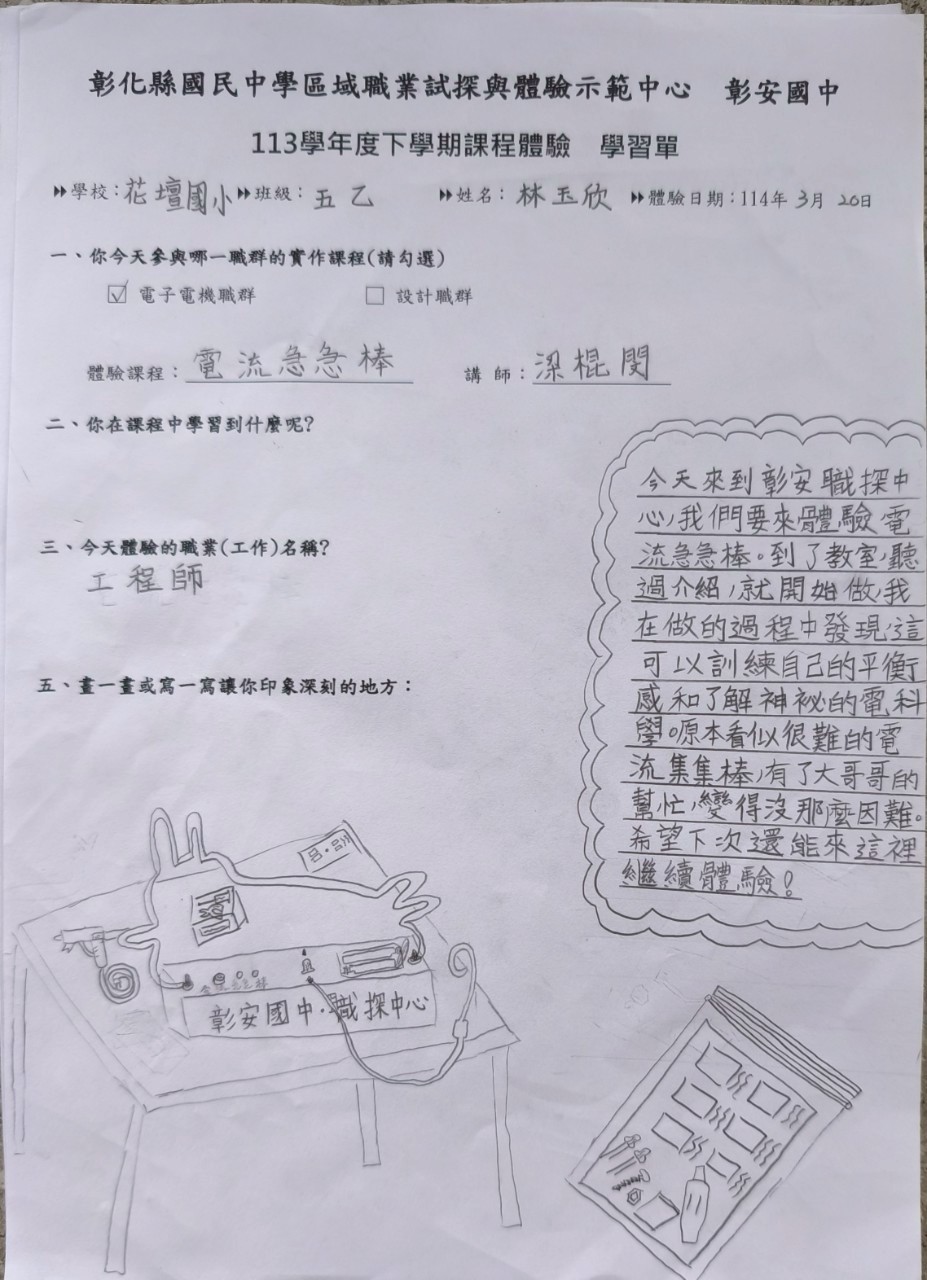 彰化縣國民中學區域職業試探與體驗示範中心　彰安國中
113學年度下學期課程體驗　學習單
學校：花壇國小 班級：五乙 姓名：林玉欣 體驗日期：114年3月20日
一、你今天參與哪一職群的實作課程(請勾選)
☑ 電子電機職群 □ 設計職群
體驗課程：電流急急棒 講師：梁棍閔
二、你在課程中學習到什麼呢?
三、今天體驗的職業(工作)名稱?
工程師
五、畫一畫或寫一寫讓你印象深刻的地方：
今天來到彰安職探中
心,我們要來體驗電
流急急棒。到了教室,聽
過介紹,就開始做,我
在做的過程中發現,這
可以訓練自己的平衡
感和了解神祕的電科
學。原本看似很難的電
流集集棒,有了大哥哥的
幫忙,變得沒那麼困難。
希望下次還能來這裡
繼續體驗!
彰安國中·職探中心